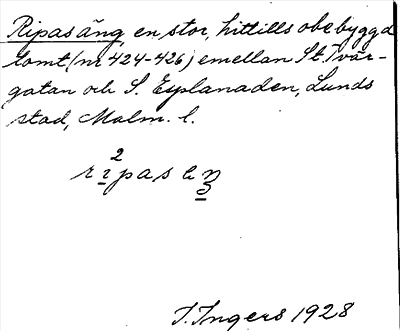 Ripasäng, en stor, hittills obebyggd
tomt (nr 424-426) emellan St. Tvär-
gatan och S. Esplanaden, Lunds
stad, Malm. l.
I. Ingers 1928